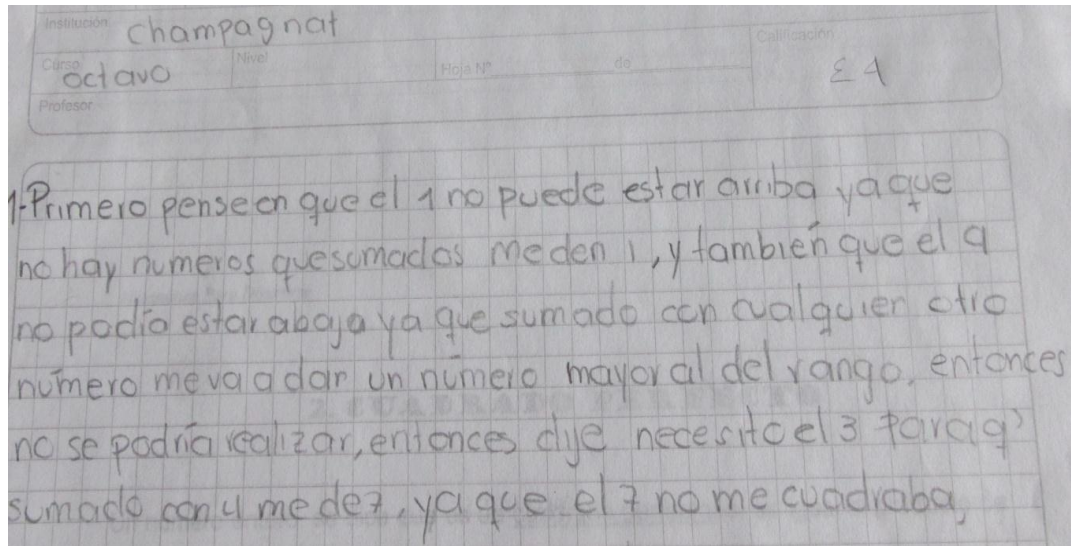 Institución champagnat
Calificación
Curso octavo Nivel Hoja Nº de
Profesor
1-Primero pense en que el 1 no puede estar arriba ya que
no hay numeros que sumados me den 1, y tambien que el 9
no podia estar abajo ya que sumado con cualquier otro
número me va a dar un número mayor al del rango, entonces
no se podría realizar, entonces dije necesito el 3 para q'
sumado con 4 me de 7, ya que el 7 no me cuadraba,